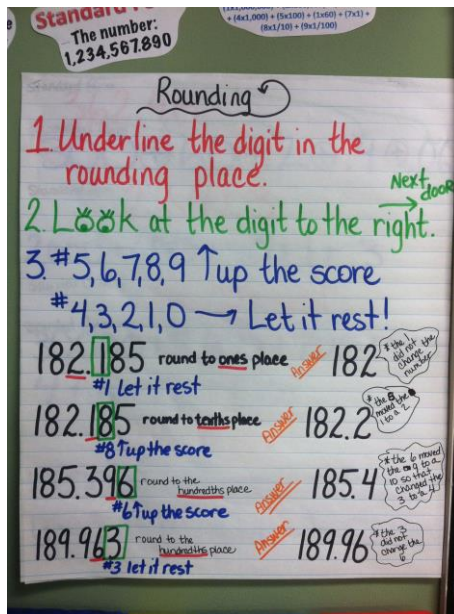 Standard
The number:
1,234,567.890
+ (4x1,000) + (5x100) + (1x60) + (7x1) +
(8x1/10) + (9x1/100)
Rounding
1. Underline the digit in the
rounding place.
Next door
2. Look at the digit to the right.
3. #5,6,7,8,9 ↑up the score
#4,3,2,1,0 → Let it rest!
182.185 round to ones place Answer 182
* the 1 did not change the number
#1 Let it rest
182.185 round to tenths place Answer 182.2
* the 8 moved the 1 to a 2
#8↑up the score
185.396 round to the hundredths place Answer 185.4
* the 6 moved the 9 to a 10 so that changed the 3 to a 4
#6↑up the score
189.963 round to the hundredths place Answer 189.96
* the 3 did not change the 6
#3 let it rest